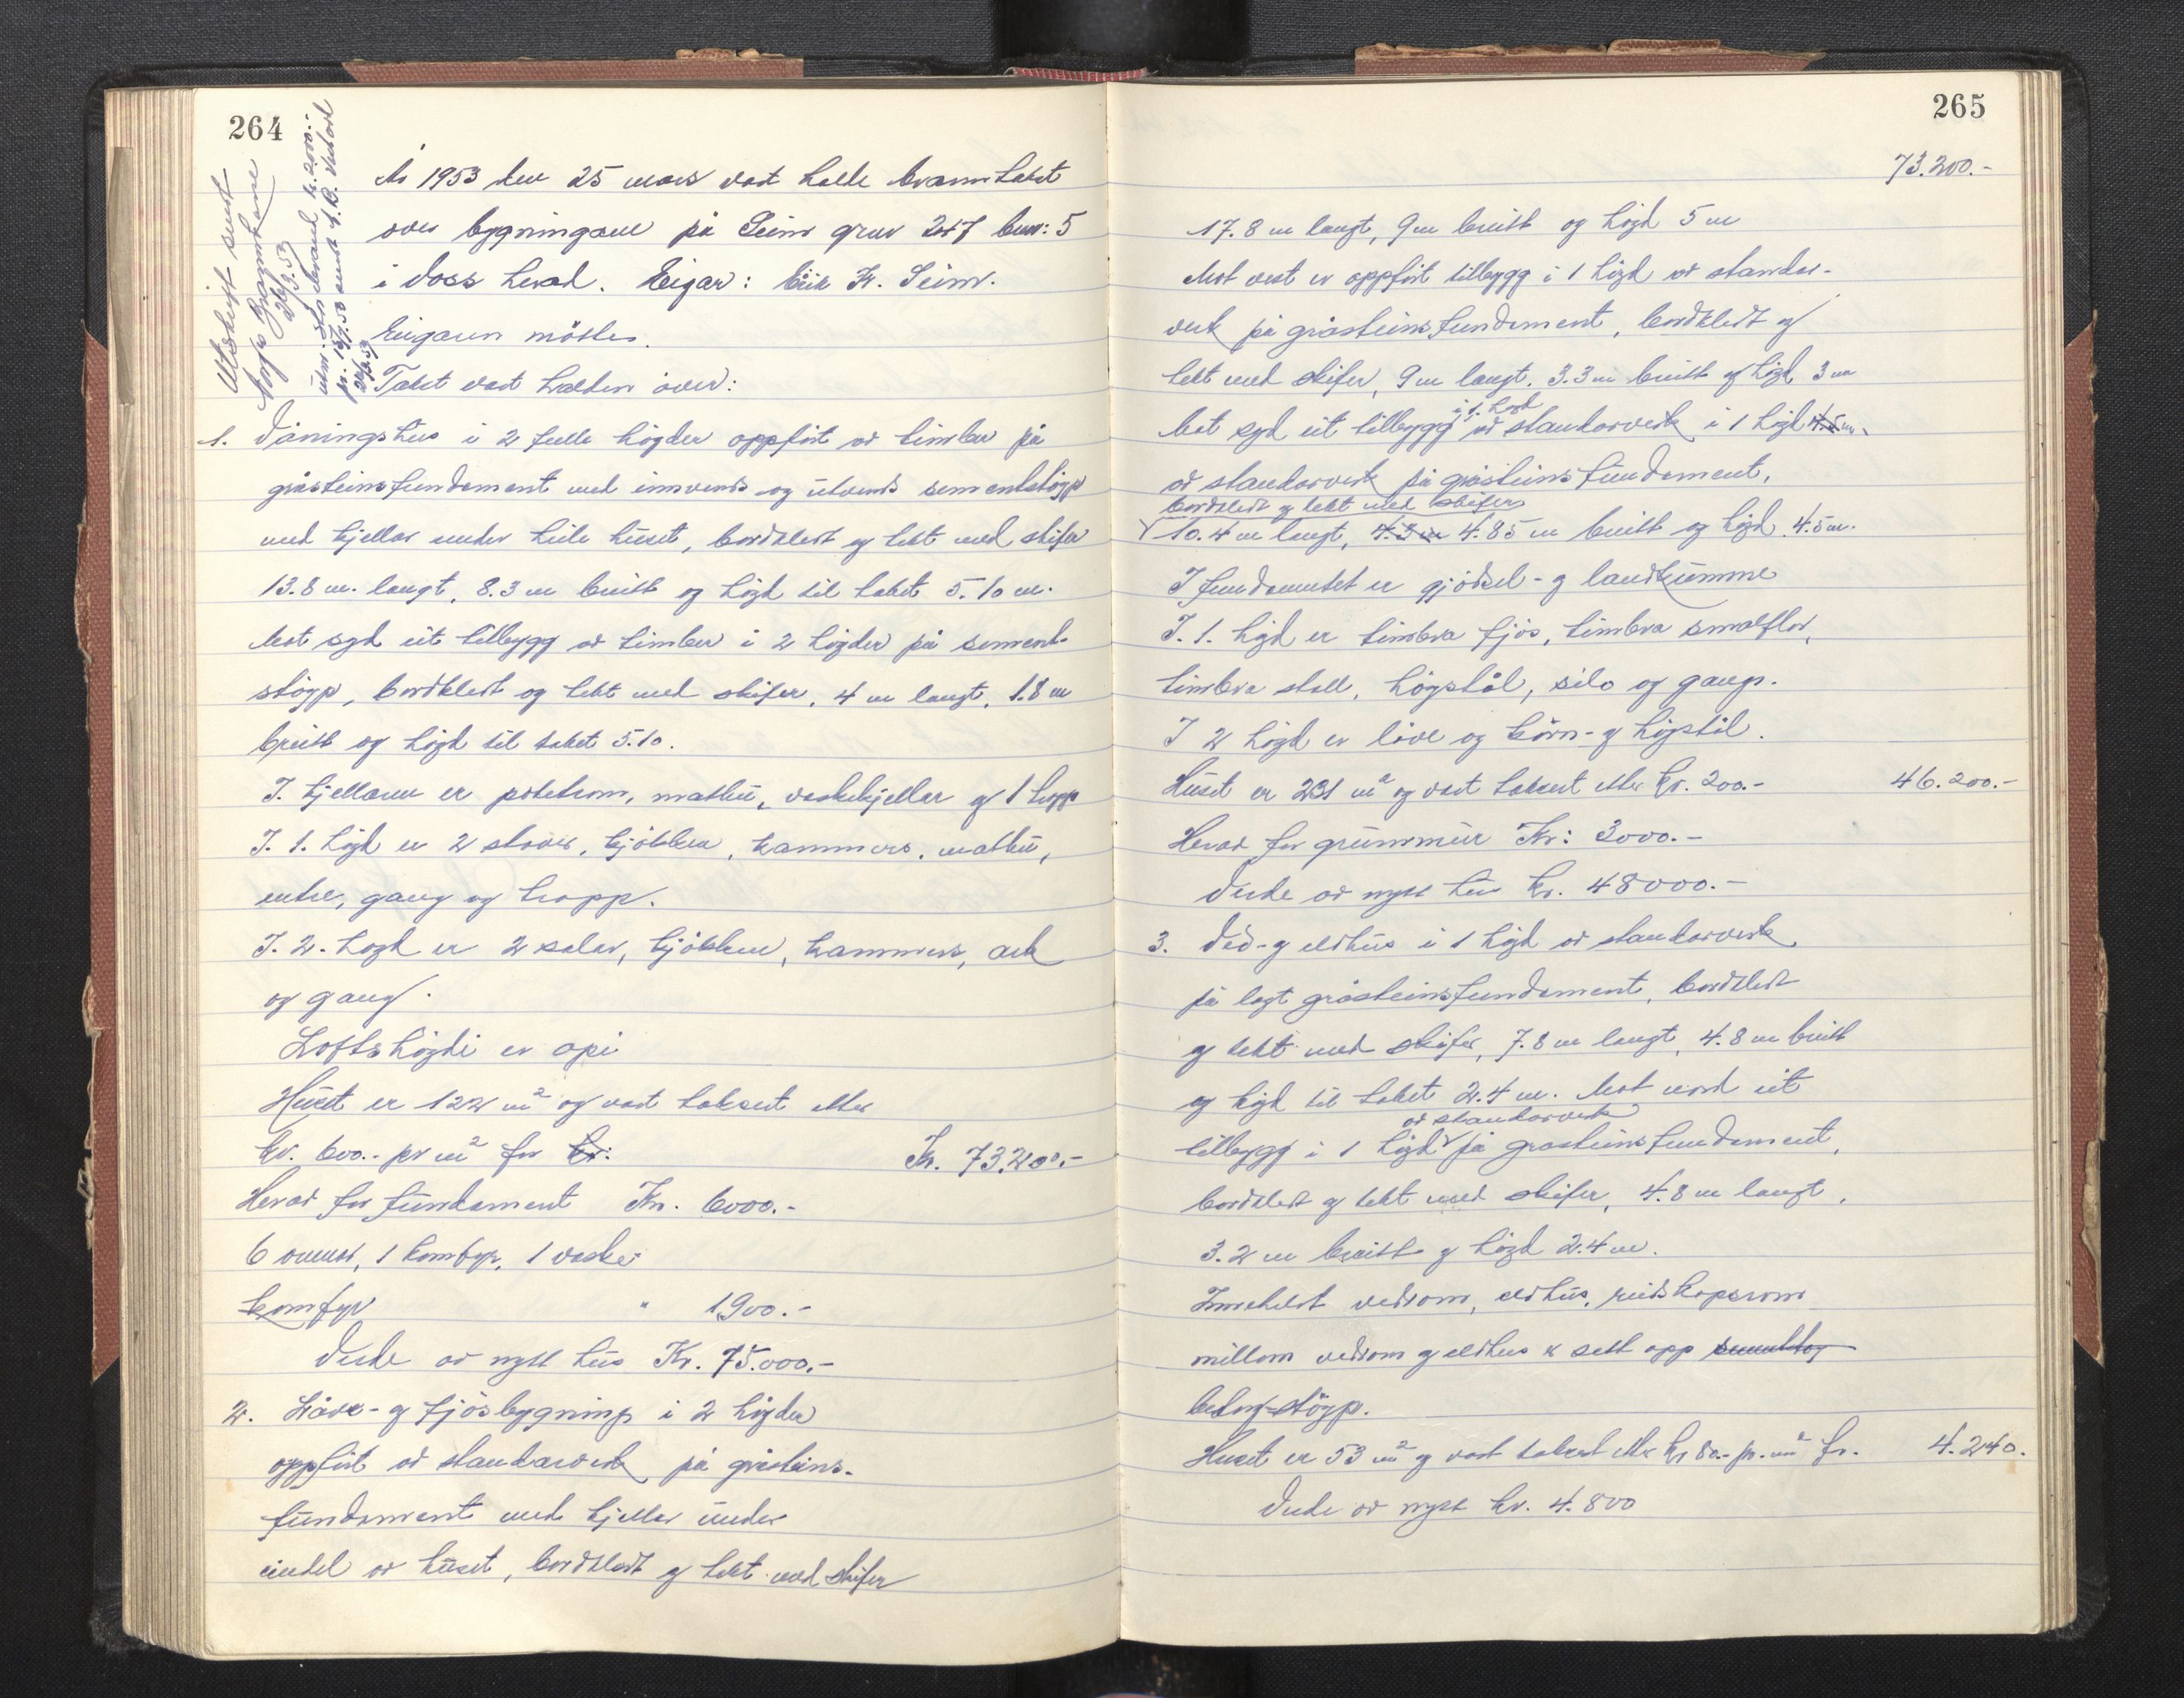 264
Utskrift sendt
Norges Brannkasse
26/3.53
År 1953 den 25 mars vart halde branntakst
over bygningane på Seim gnr 247 bnr: 5
i Voss herad. Eigar: Eirik K. Seim.
Eigaren møtte.
Takst vart halden over:
1. Våningshus i 2 fulle høgder oppført av timber på
gråsteinsfundament med innvends og utvends sementstøyp
med kjellar under heile huset, bordkledt og tekt med skifer
13.8 m. langt, 8.3 m breitt og høgd til taket 5.10 m.
Mot syd eit tilbygg av timber i 2 høgder på sement-
støyp, bordkledt og tekt med skifer, 4 m langt, 1.8 m
breitt og høgd til taket 5.10.
I. kjellaren er potetrom, matbu, vaskekjellar og 1 trapp
I. 1. høgd er 2 stover, kjökken, kammers, matbu,
entre, gang og trapp.
I. 2. høgd er 2 salar, kjökken, kammers, ark
og gang.
Loftshøgdi er opi
Huset er 122 m² og vart taksert etter
kr. 600.- pr m² for kr: Kr. 73.200.-
Herav for fundament Kr. 6000.-
6 omnar, 1 komfyr, 1 vaske-
komfyr " 1900.-
Verde av nytt hus Kr. 75.000.-
2. Låve- og fjösbygning i 2 høgder
oppført av standarverk på gråsteins-
fundament med kjellar under
eindel av huset, bordkledt og tekt med skifer
265
73.200.-
17.8 m langt, 9 m breitt og høgd 5 m
Mot vest er oppført tilbygg i 1 høgd av standar-
verk på gråsteinsfundament, bordkledt og
tekt med skifer, 9 m langt, 3.3 m breitt og høgd 3 m
i 1. høgd
Mot syd eit tilbygg av standarverk i 1 høgd 4.5 m.
av standarverk på gråsteinsfundament,
bordkledt og tekt med skifer
10.4 m langt, 4.3 m 4.85 m breitt og høgd 4.5 m.
I fundamentet er gjödsel- og landkumme
I. 1. høgd er timbra fjös, timbra smalflor,
timbra stall, høystål, silo og gang.
I 2 høgd er låve og korn- og høystål.
Huset er 231 m² og vart taksert etter kr. 200.- 46.200.-
Herav for grunnmur Kr: 3000.-
Verde av nytt hus kr. 48000.-
3. Ved- og eldhus i 1 høgd av standarverk
på lagt gråsteinsfundament, bordkledt
og tekt med skifer, 7.8 m langt, 4.8 m breitt
og høgd til taket 2.4 m. Mot nord eit
av standarverk
tilbygg i 1 høgd på gråsteinsfundament,
bordkledt og tekt med skifer, 4.8 m langt,
3.2 m breitt og høgd 2.4 m.
Inneheld vedrom, eldhus, reidskapsrom
millom vedrom og eldhus er sett opp
betongstøyp.
Huset er 53 m² og vart taksert etter kr 80.- pr. m² fr. 4.240.
Verde av nytt kr. 4.800